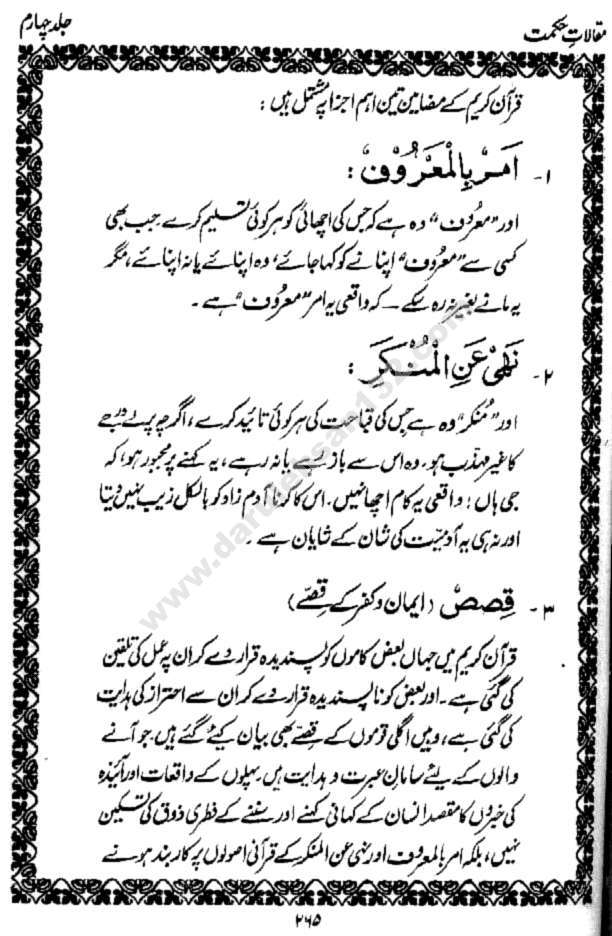 مقالاتِ حکمت
جلد چہارم
قرآن کریم کے مضامین تین اہم اجزا پر مشتمل ہیں :
۱- اَمْرٌ بِالْمَعْرُوْفِ :
اور "معرُوف" وہ ہے کہ جس کی اچھائی کو ہر کوئی تسلیم کرے جب بھی
کسی سے "معرُوف" اپنانے کو کہا جائے، وہ اپنائے یا نہ اپنائے، مگر
یہ مانے بغیر نہ رہ سکے ــ کہ واقعی یہ امر "معرُوف" ہے ۔
۲- نَهْیٌ عَنِ الْمُنْكَرِ :
اور "مُنکر" وہ ہے جس کی قباحت کی ہر کوئی تائید کرے، اگرچہ پرلے درجے
کا غیر مہذّب ہو۔ وہ اس سے باز رہے یا نہ رہے، یہ کہنے پر مجبور ہو، کہ
جی ہاں! واقعی یہ کام اچھا نہیں۔ اس کا کرنا آدم زاد کو بالکل زیب نہیں دیتا
اور نہ ہی یہ آدمیّت کی شان کے شایان ہے ۔
۳- قِصَصٌ (ایمان و کفر کے قصّے)
قرآن کریم میں جہاں بعض کاموں کو پسندیدہ قرار دے کر ان پہ عمل کی تلقین
کی گئی ہے ۔ اور بعض کو ناپسندیدہ قرار دے کر ان سے احتراز کی ہدایت
کی گئی ہے، وہیں اگلی قوموں کے قصّے بھی بیان کیئے گئے ہیں۔ جو آنے
والوں کے لیئے سامانِ عبرت و ہدایت ہیں۔ پہلوں کے واقعات اور آئیندہ
کی خبروں کا مقصد انسان کے کہانی کہنے اور سننے کے فطری ذوق کی تسکین
نہیں، بلکہ امر بالمعروف اور نہی عن المنکر کے قرآنی اصولوں پر کاربند ہونے
۲۶۵
www.darulehsan132.com